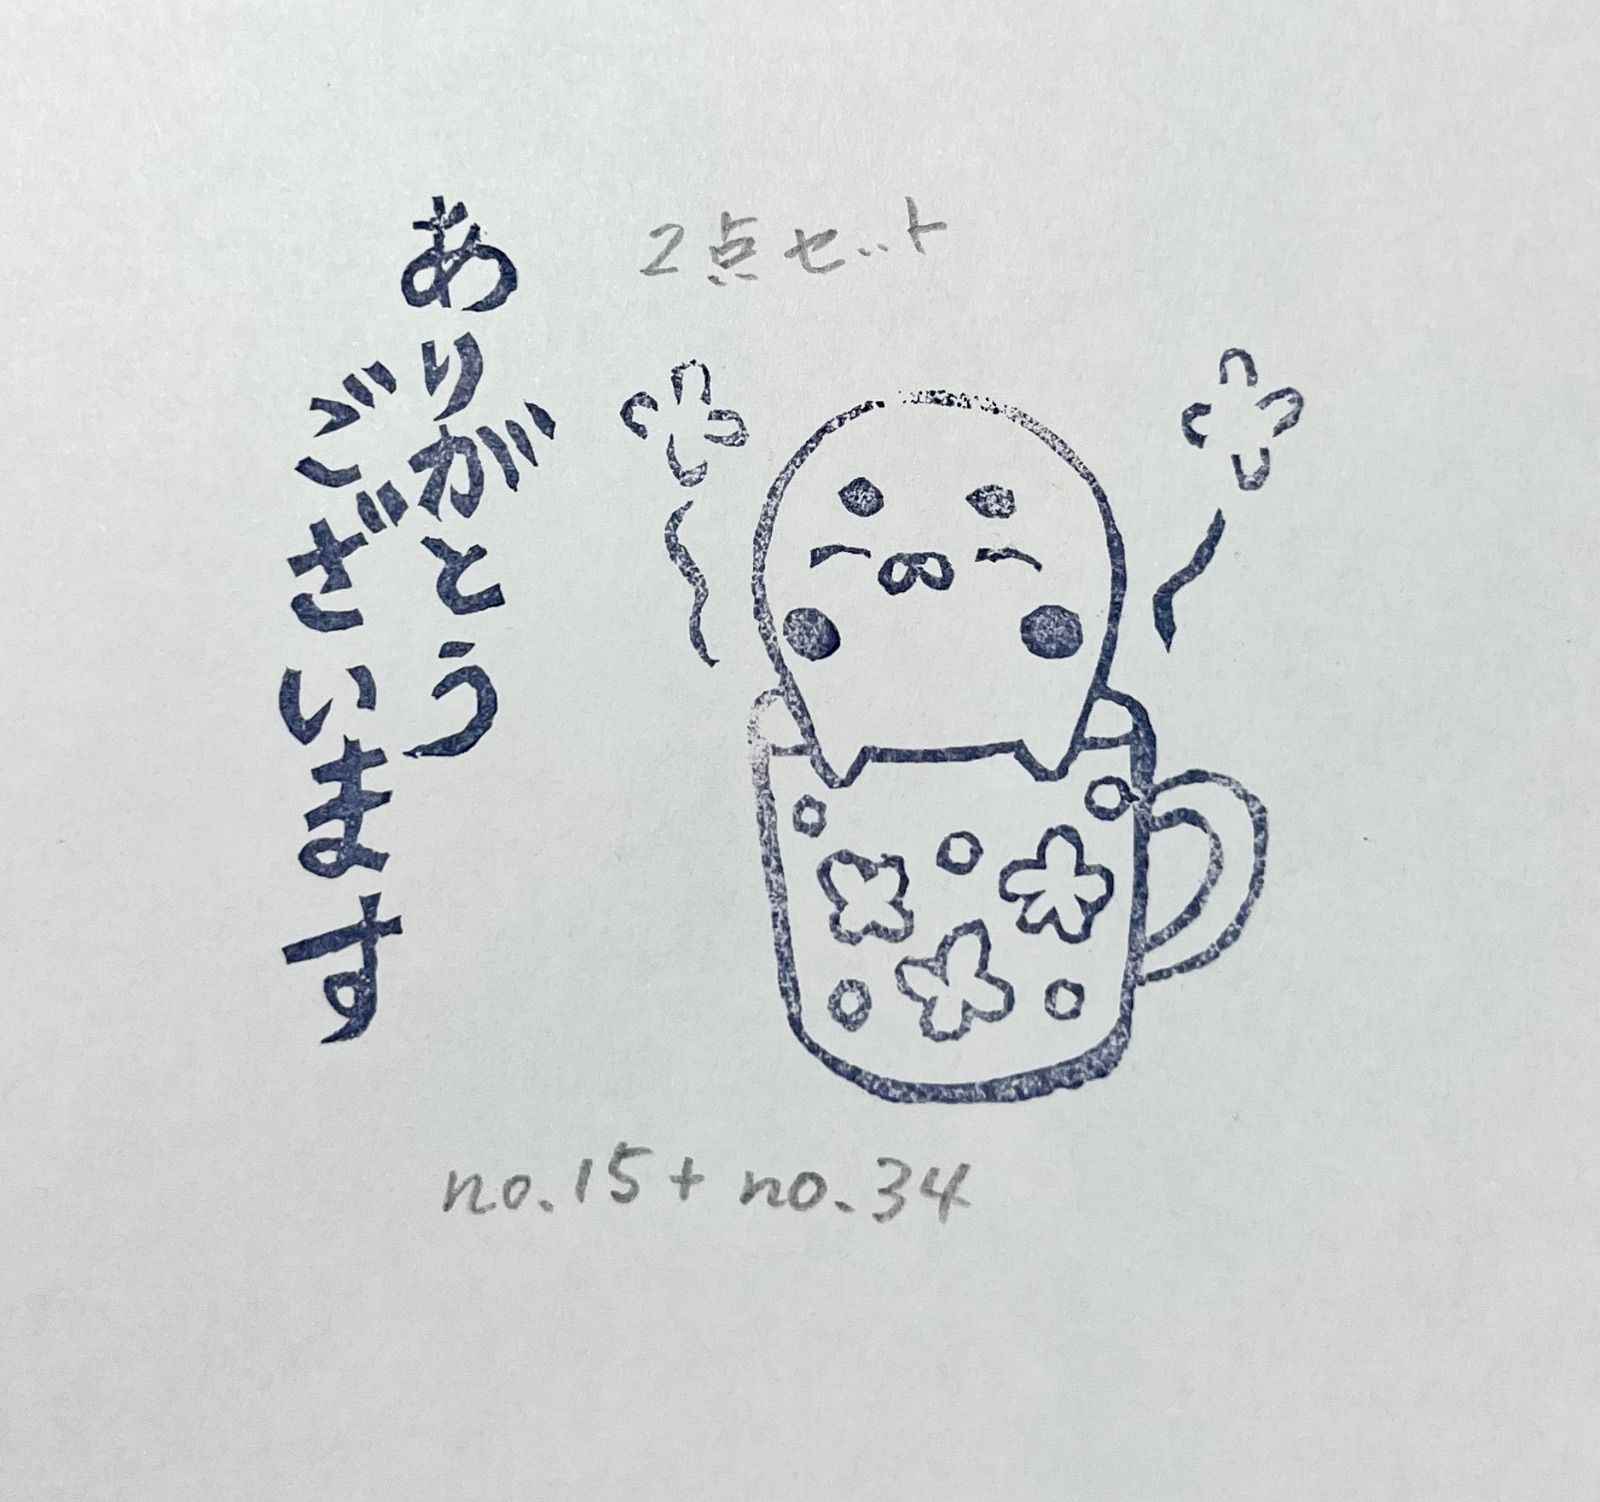 ありがとう
ございます
2点セット
no.15+no.34